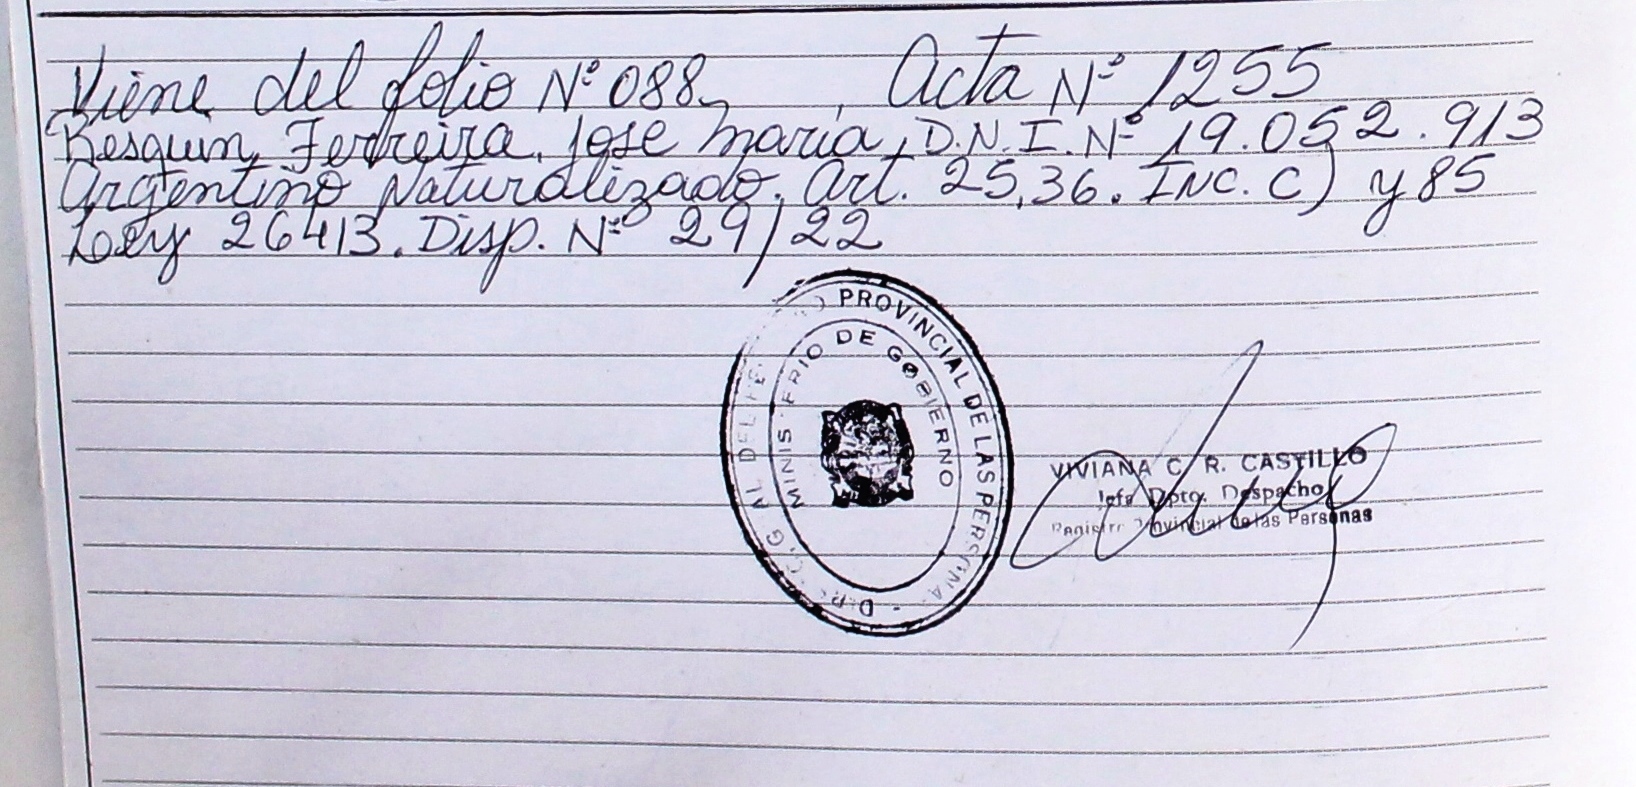 Viene del folio Nº 088, Acta Nº 1255
Resquin Ferreira, Jose maria, D.N.I. Nº 19.052.913
Argentino Naturalizado. Art. 25,36. INC. C) y 85
Ley 26413. Disp. Nº 29/22
PROVINCIAL DE LAS PERSONAS
MINISTERIO DE GOBIERNO
VIVIANA C. R. CASTILLO
Jefa Dpto. Despacho
Registro Provincial de las Personas